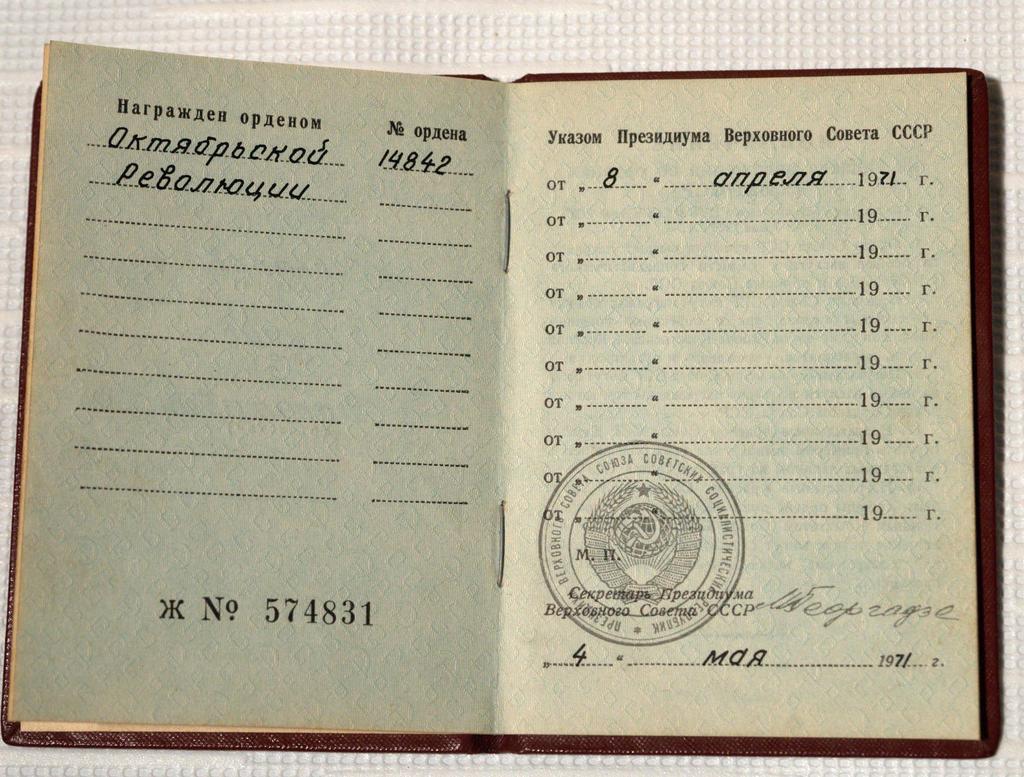 Награжден орденом
№ ордена
Октябрьской
14842
Революции
Ж № 574831
Указом Президиума Верховного Совета СССР
от „ 8 “ апреля 1971 г.
от „ “ 19 г.
от „ “ 19 г.
от „ “ 19 г.
от „ “ 19 г.
от „ “ 19 г.
от „ “ 19 г.
от „ “ 19 г.
от „ “ 19 г.
от „ “ 19 г.
ПРЕЗИДИУМ ВЕРХОВНОГО СОВЕТА СОЮЗА СОВЕТСКИХ СОЦИАЛИСТИЧЕСКИХ РЕСПУБЛИК *
М. П.
Секретарь Президиума
Верховного Совета СССР МГеоргадзе
„ 4 “ мая 1971 г.